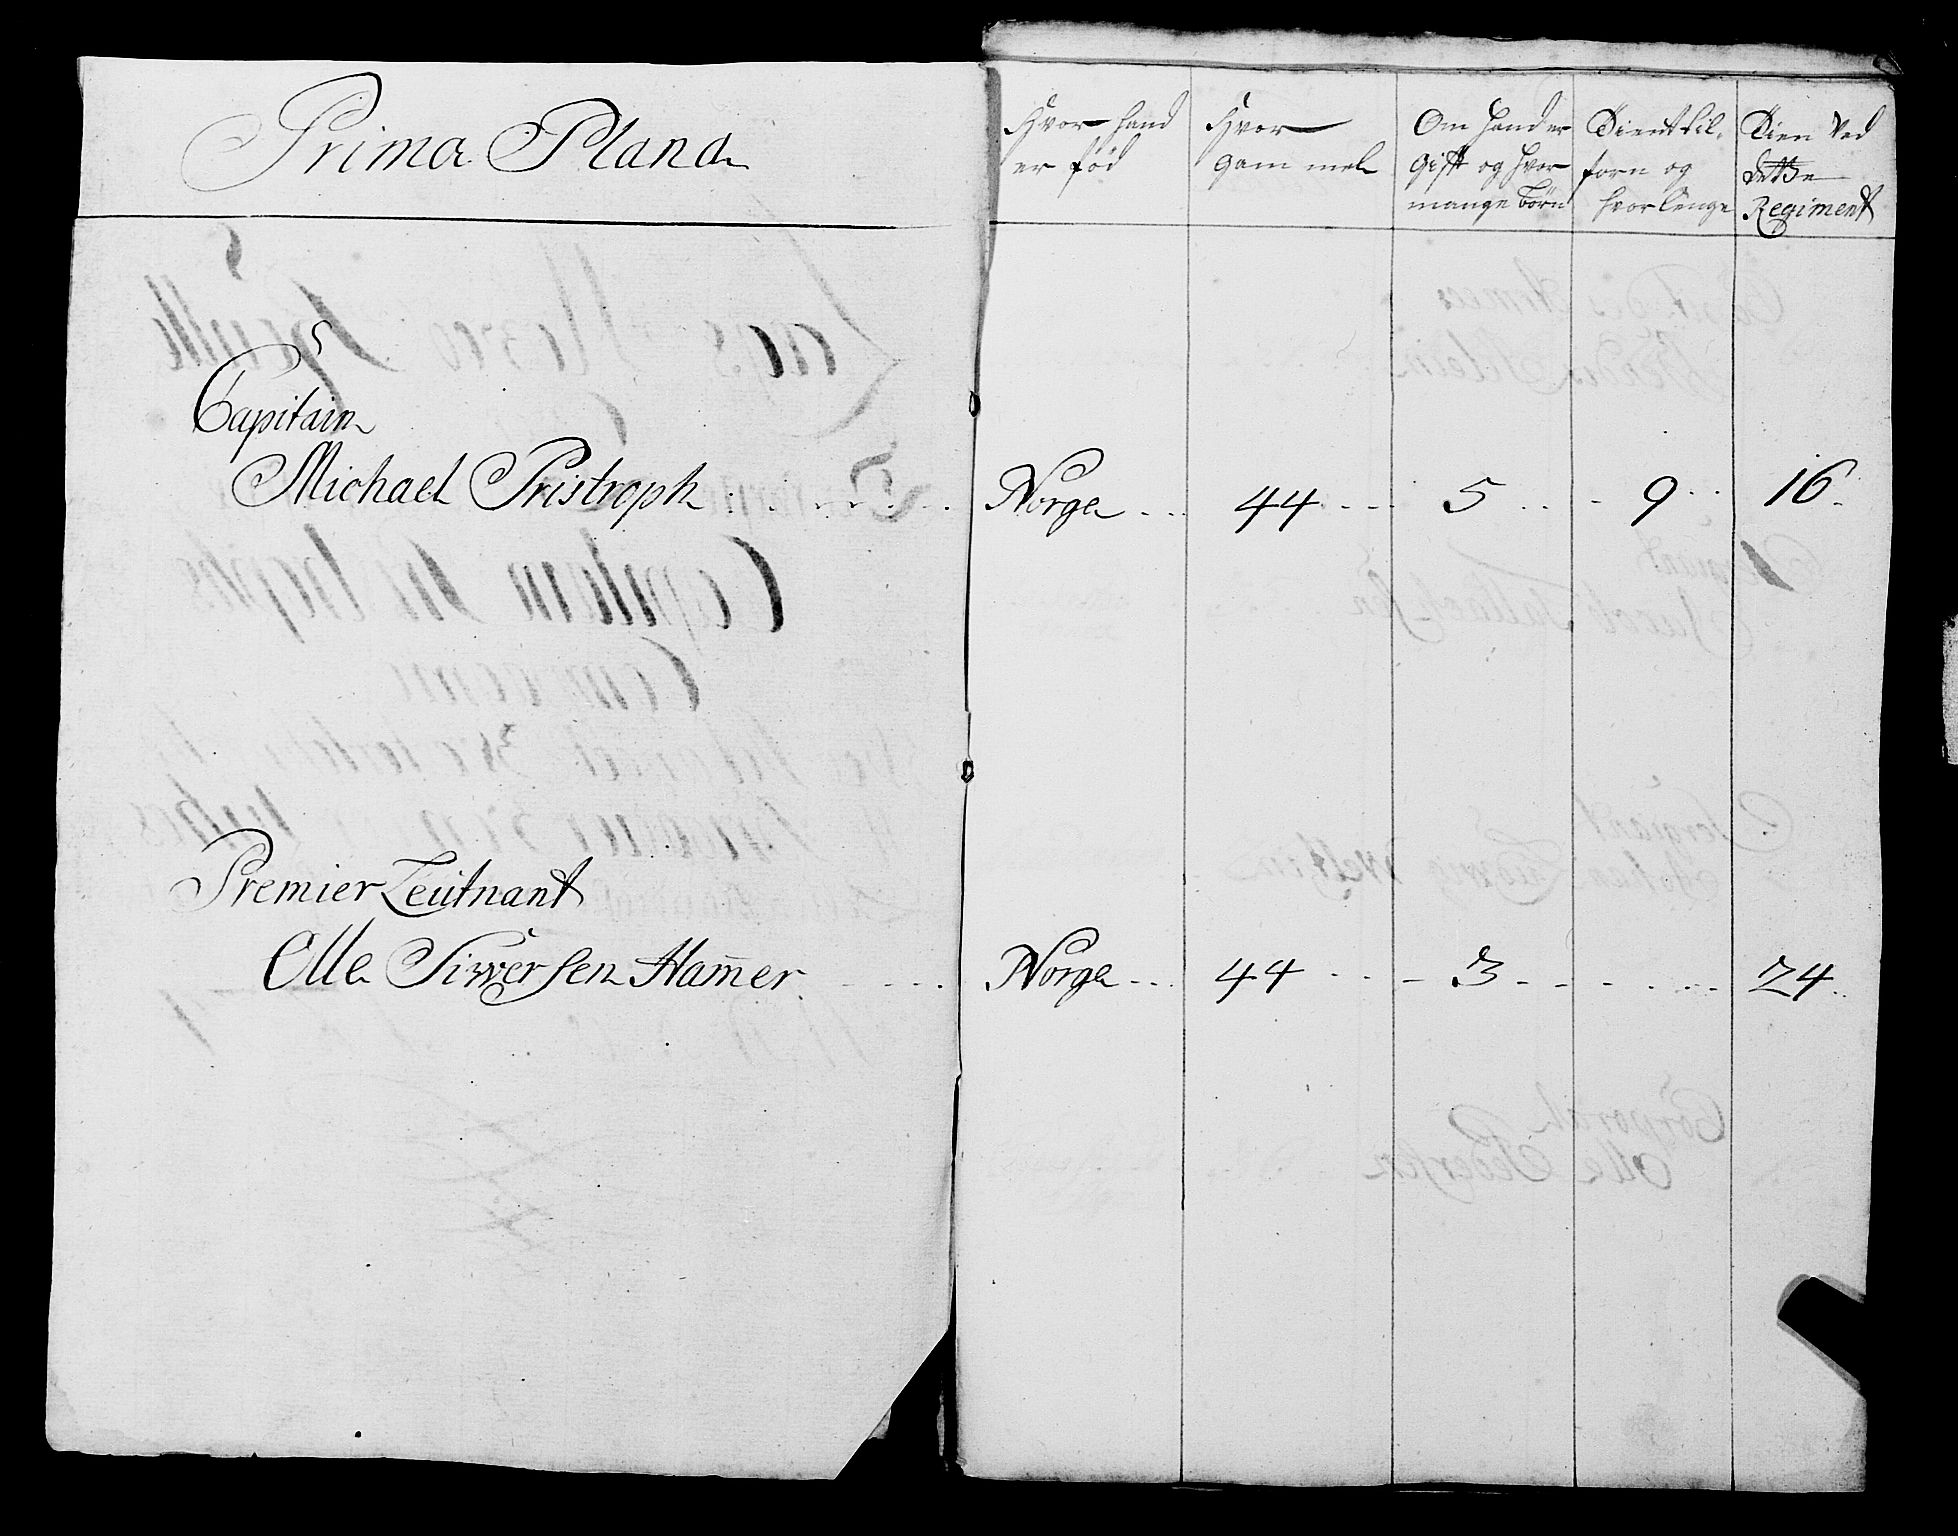 Prima Plana
Hvor hand
er fød
Hvor
gammel
Om hand er
gift og hvor
mange børn
Dient til-
forn og
hvor lenge
Dien ved
dette
Regiment
Capitain
Michael Pristroph Norge 44 5 9 16
Premier Leutnant
Olle Siwersen Ham̄er Norge 44 3 24